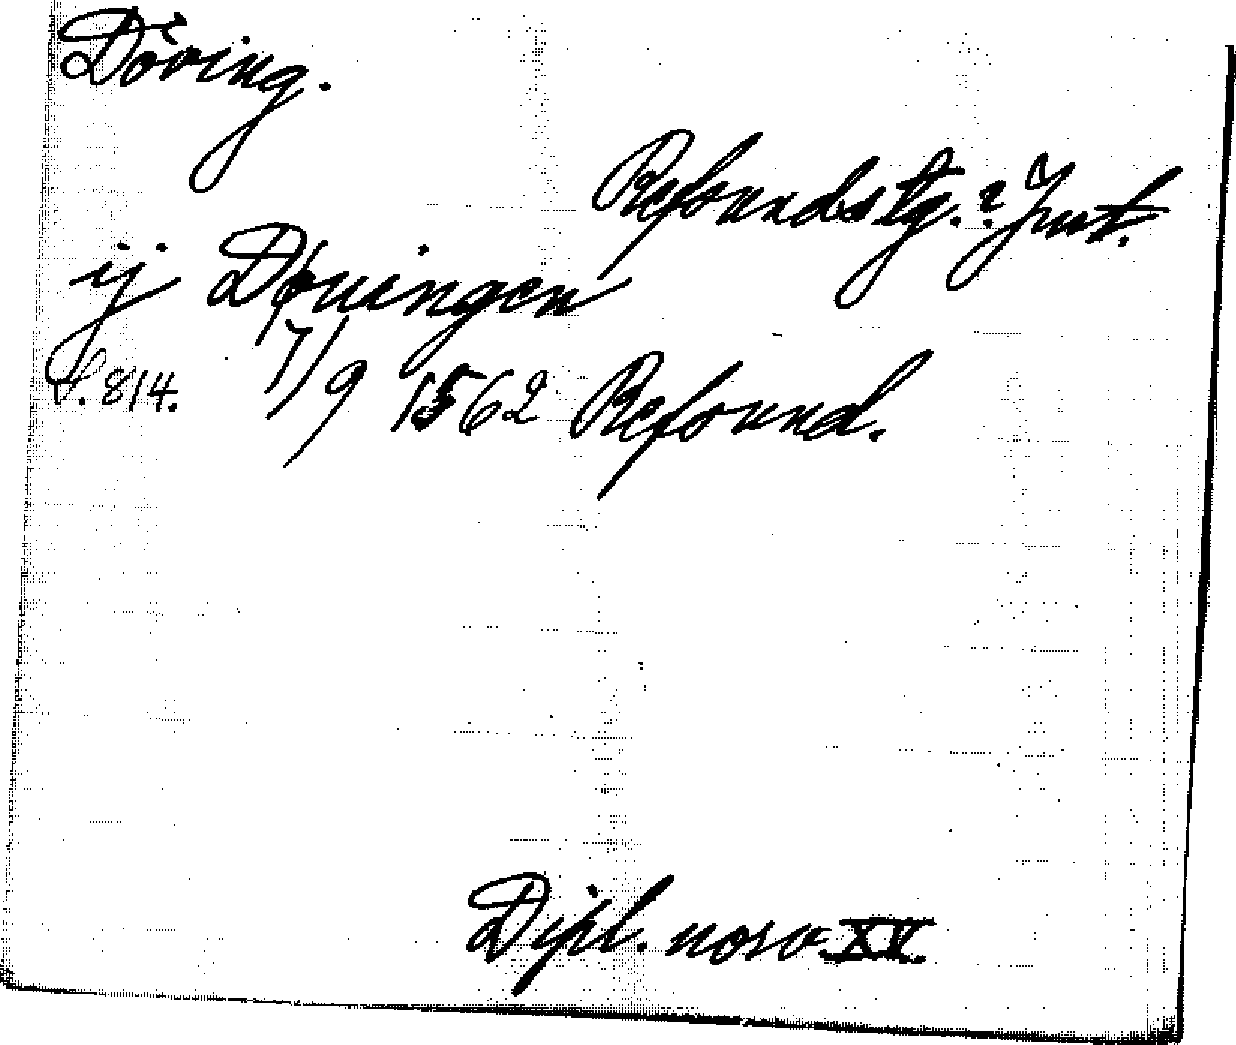 Döving.
Refoundstg.? Jmt.
ij Døuingen
S. 814. 7/9 1562 Refound.
Dipl. norv. XV.